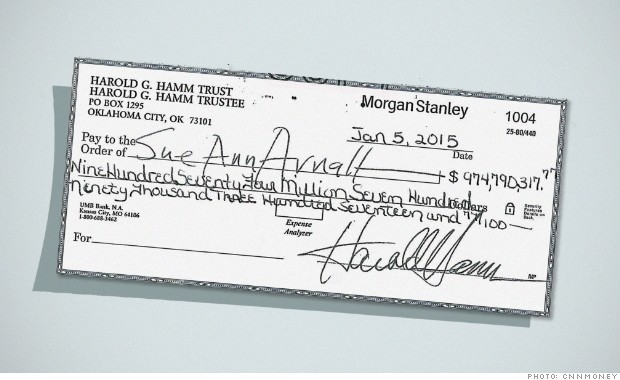 HAROLD G. HAMM TRUST
HAROLD G. HAMM TRUSTEE
PO BOX 1295
OKLAHOMA CITY, OK 73101
MorganStanley
1004
25-80/440
Jan 5, 2015
Date
Pay to the
Order of Sue Ann Arnall $ 974,790,317.77
Nine Hundred Seventy Four Million Seven Hundred Dollars
Ninety Thousand Three Hundred Seventeen and 77/100
Security
Features
Details on
Back.
UMB Bank, N.A.
Kansas City, MO 64106
1-800-688-3462
Expense
Analyzer
For
Harold Hamm
MP
PHOTO: CNNMONEY